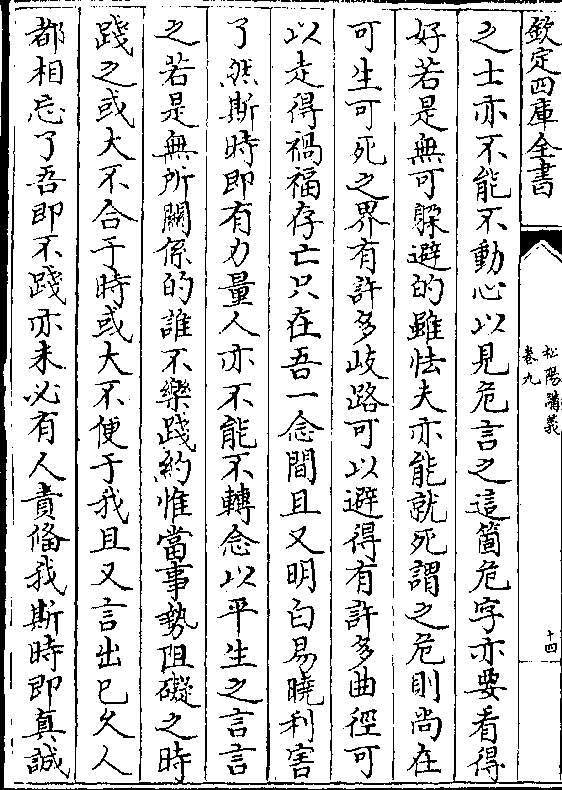 欽定四庫全書
松陽講義
卷九
十四
之士亦不能不動心以見危言之這箇危字亦要看得
好若是無可躱避的雖怯夫亦能就死謂之危則尚在
可生可死之界有許多歧路可以避得有許多曲徑可
以走得禍福存亡只在吾一念間且又明白易曉利害
了然斯時即有力量人亦不能不轉念以平生之言言
之若是無所關係的誰不樂踐約惟當事勢阻礙之時
踐之或大不合于時或大不便于我且又言出已久人
都相忘了吾即不踐亦未必有人責備我斯時即真誠